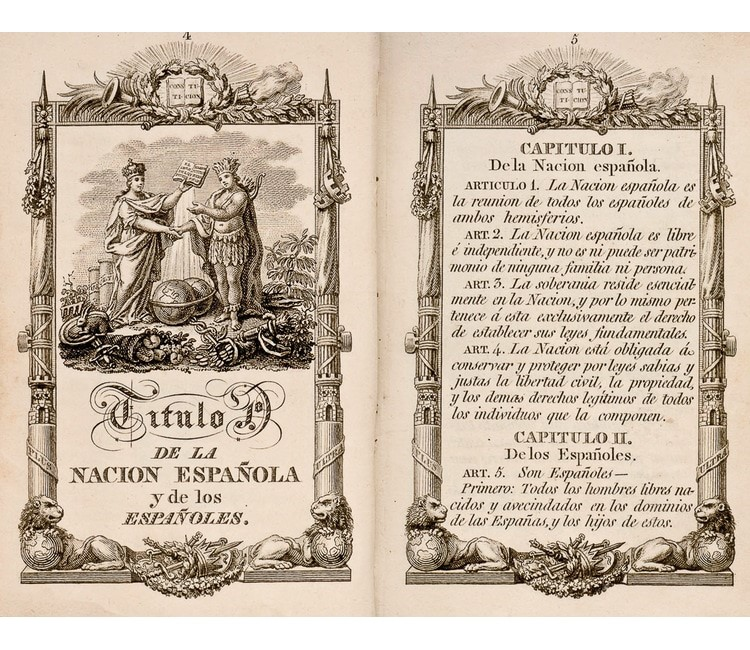 4
CONS TU
TI CION
Titulo Pº
DE LA
NACION ESPAÑOLA
y de los
ESPAÑOLES.
PLUS
ULTRA
5
CONS TU
TI CION
CAPITULO I.
De la Nacion española.
ARTICULO 1. La Nacion española es
la reunion de todos los españoles de
ambos hemisferios.
ART. 2. La Nacion española es libre
é independiente, y no es ni puede ser patri
monio de ninguna familia ni persona.
ART. 3. La soberania reside esencial
mente en la Nacion, y por lo mismo per-
tenece á esta esclusivamente el derecho
de establecer sus leyes fundamentales.
ART. 4. La Nacion está obligada á
conservar y proteger por leyes sabias y
justas la libertad civil, la propiedad,
y los demas derechos legítimos de todos
los individuos que la componen.
CAPITULO II.
De los Españoles.
ART. 5. Son Españoles—
Primero: Todos los hombres libres na-
cidos y avecindados en los dominios
de las Españas, y los hijos de estos.
PLUS
ULTRA